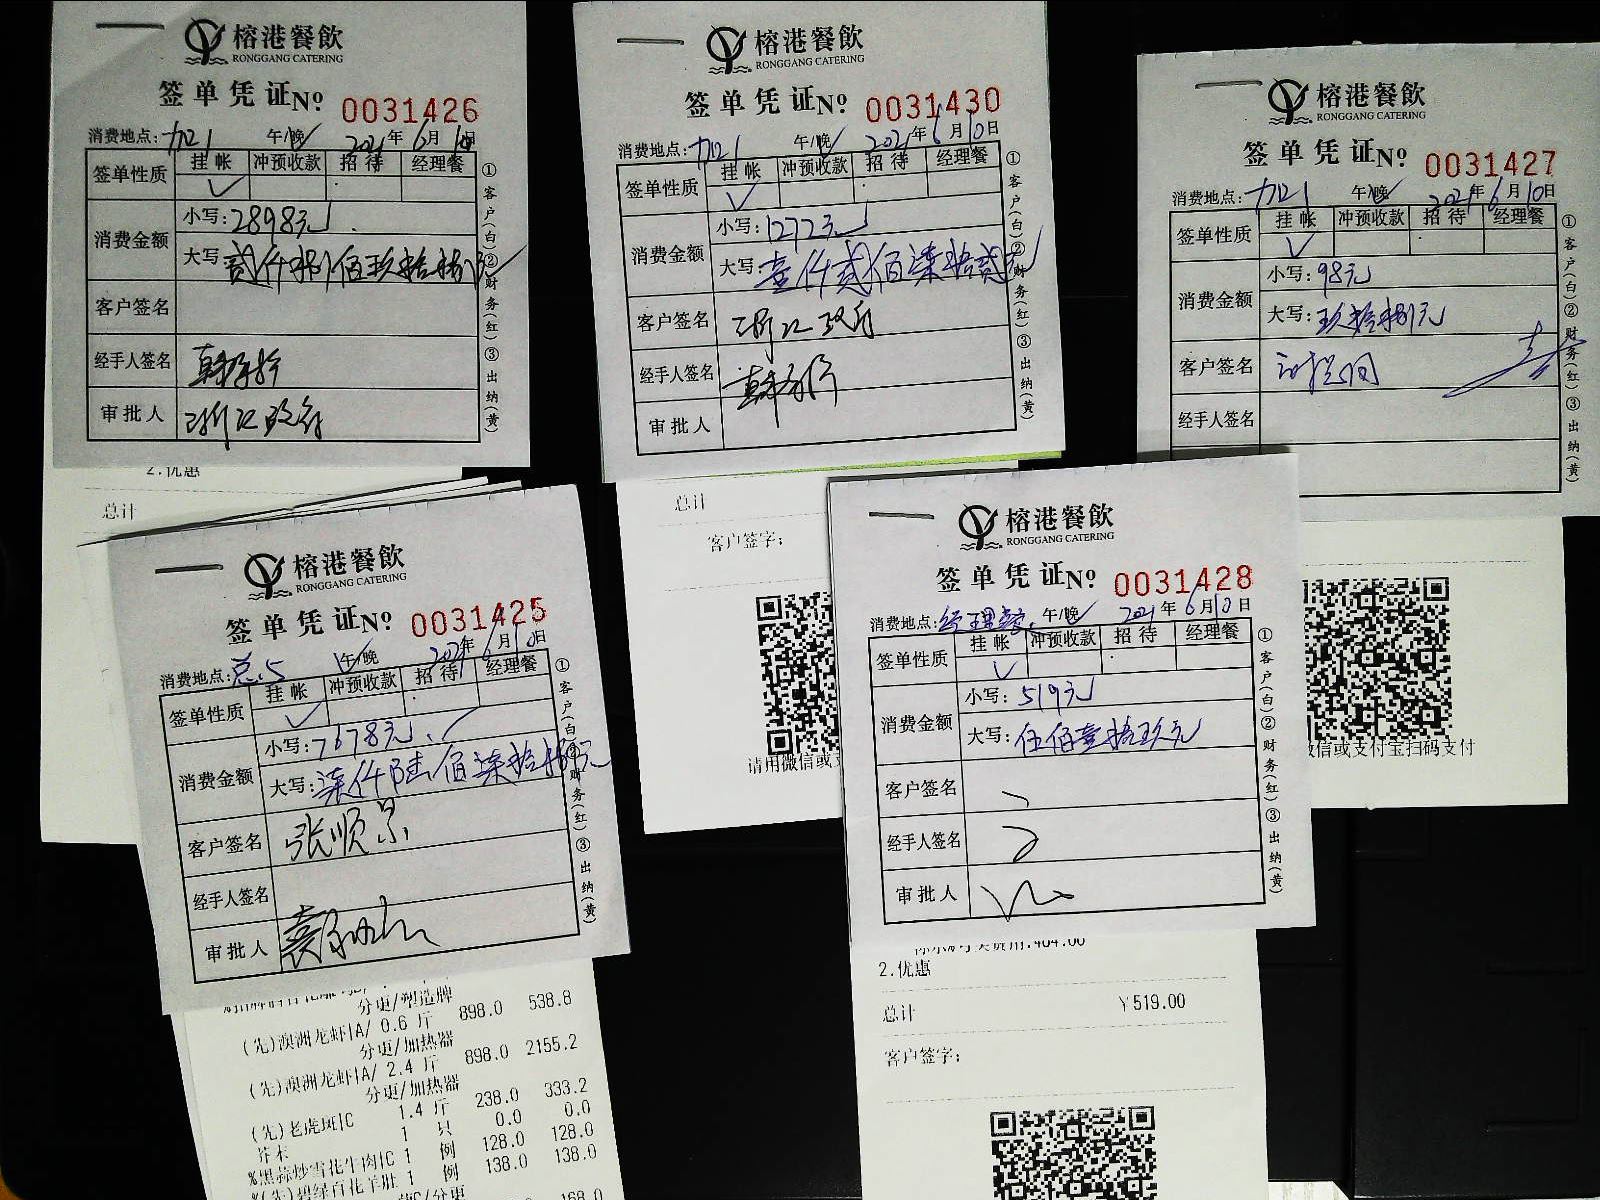 榕港餐飲
RONGGANG CATERING
签单凭证№ 0031426
消费地点: 加21 午/晚 2021年6月10日
签单性质 挂帐 冲预收款 招待 经理餐
✓
消费金额 小写:2898元
大写:贰仟捌佰玖拾捌元
客户签名
经手人签名
审批人 浙江政府
①客户(白)②财务(红)③出纳(黄)
2.优惠
总计
榕港餐飲
RONGGANG CATERING
签单凭证№ 0031430
消费地点: 加21 午/晚 2021年6月10日
签单性质 挂帐 冲预收款 招待 经理餐
✓
消费金额 小写:1272元
大写:壹仟贰佰柒拾贰元
客户签名 浙江政府
经手人签名
审批人
①客户(白)②财务(红)③出纳(黄)
总计
客户签字:
请用微信或支
榕港餐飲
RONGGANG CATERING
签单凭证№ 0031427
消费地点: 加21 午/晚 2021年6月10日
签单性质 挂帐 冲预收款 招待 经理餐
✓
消费金额 小写:98元
大写:玖拾捌元
客户签名
经手人签名
①客户(白)②财务(红)③出纳(黄)
微信或支付宝扫码支付
榕港餐飲
RONGGANG CATERING
签单凭证№ 0031425
消费地点: 午/晚 2021年6月10日
签单性质 挂帐 冲预收款 招待 经理餐
✓
消费金额 小写:7678元
大写:柒仟陆佰柒拾捌元
客户签名 张顺景
经手人签名
审批人
①客户(白)②财务(红)③出纳(黄)
分更/塑造牌
(先)澳洲龙虾|A/ 0.6 斤 898.0 538.8
分更/加热器
(先)澳洲龙虾|A/ 2.4 斤 898.0 2155.2
分更/加热器
(先)老虎斑|C 1.4 斤 238.0 333.2
芥末 1 只 0.0 0.0
%黑蒜炒雪花牛肉|C 1 例 128.0 128.0
%(先)碧绿百花羊肚 1 例 138.0 138.0
168.0
榕港餐飲
RONGGANG CATERING
签单凭证№ 0031428
消费地点: 经理餐 午/晚 2021年6月10日
签单性质 挂帐 冲预收款 招待 经理餐
✓
消费金额 小写:519元
大写:伍佰壹拾玖元
客户签名
经手人签名
审批人
①客户(白)②财务(红)③出纳(黄)
2.优惠
总计 ¥519.00
客户签字: